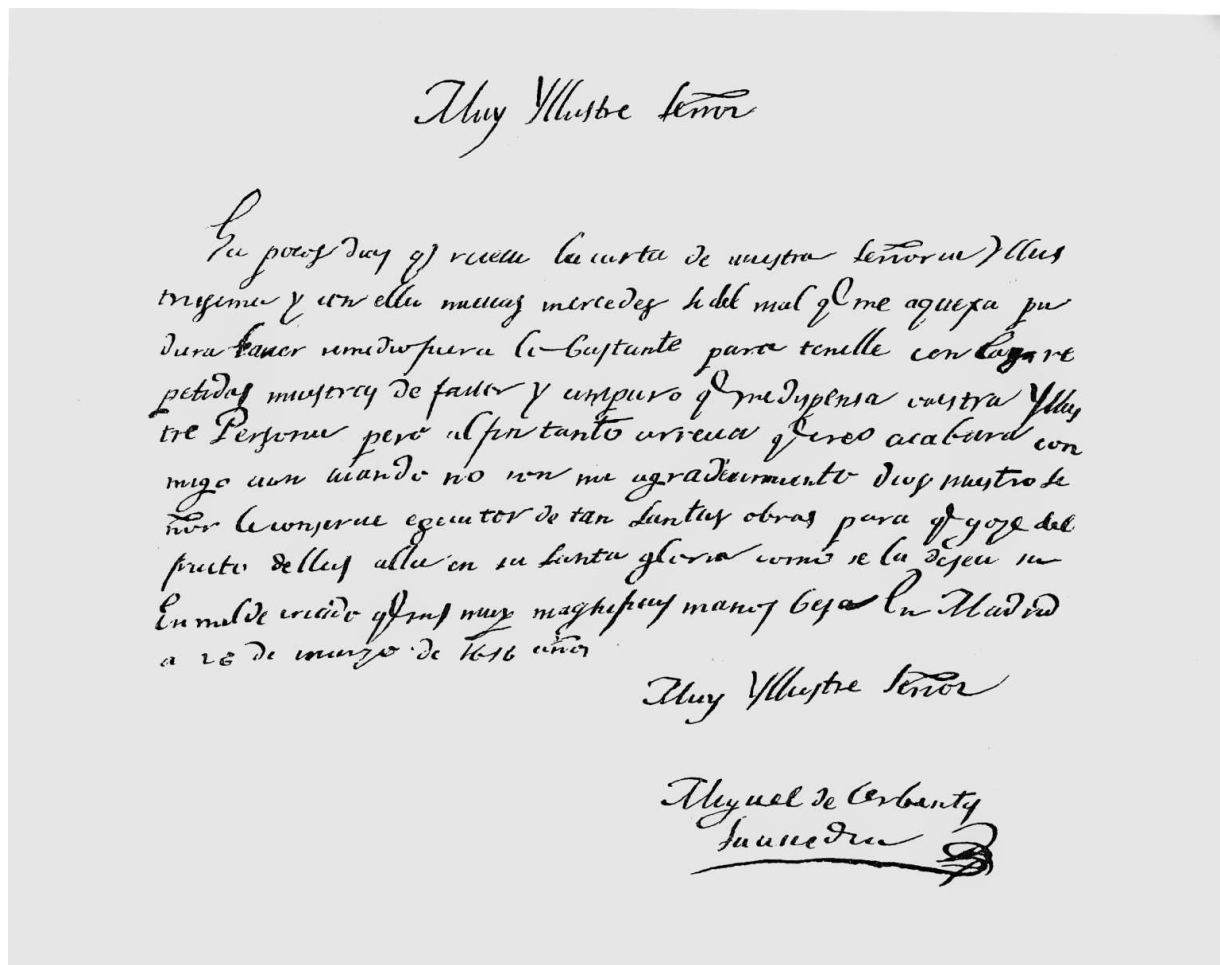 Muy Yllustre Señor
Ha pocos dias q̃ receui la carta de vuestra Señoria Yllus
trisima y con ella nueuas mercedes si del mal q̃ me aquexa pu
diera hauer remedio fuera lo bastante para tenelle con las re
petidas muestras de fauor y amparo q̃ me dispensa vuestra Yllus
tre Persona pero al fin tanto arrecia q̃ creo acabara con
migo aun cuando no con mi agradecimiento dios nuestro Se
ñor le conserue egecutor de tan santas obras para q̃ goze del
fruto dellas alla en su santa gloria como se la desea su
humilde criado q̃ sus muy magnificas manos besa En Madrid
a 26 de marzo de 1616 años
Muy Yllustre Señor
Miguel de Cerbantes
Saauedra